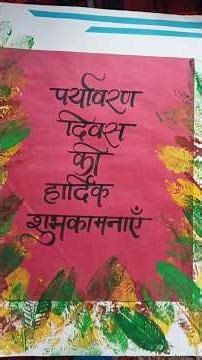 पर्यावरण
दिवस
की
हार्दिक
शुभकामनाएँ